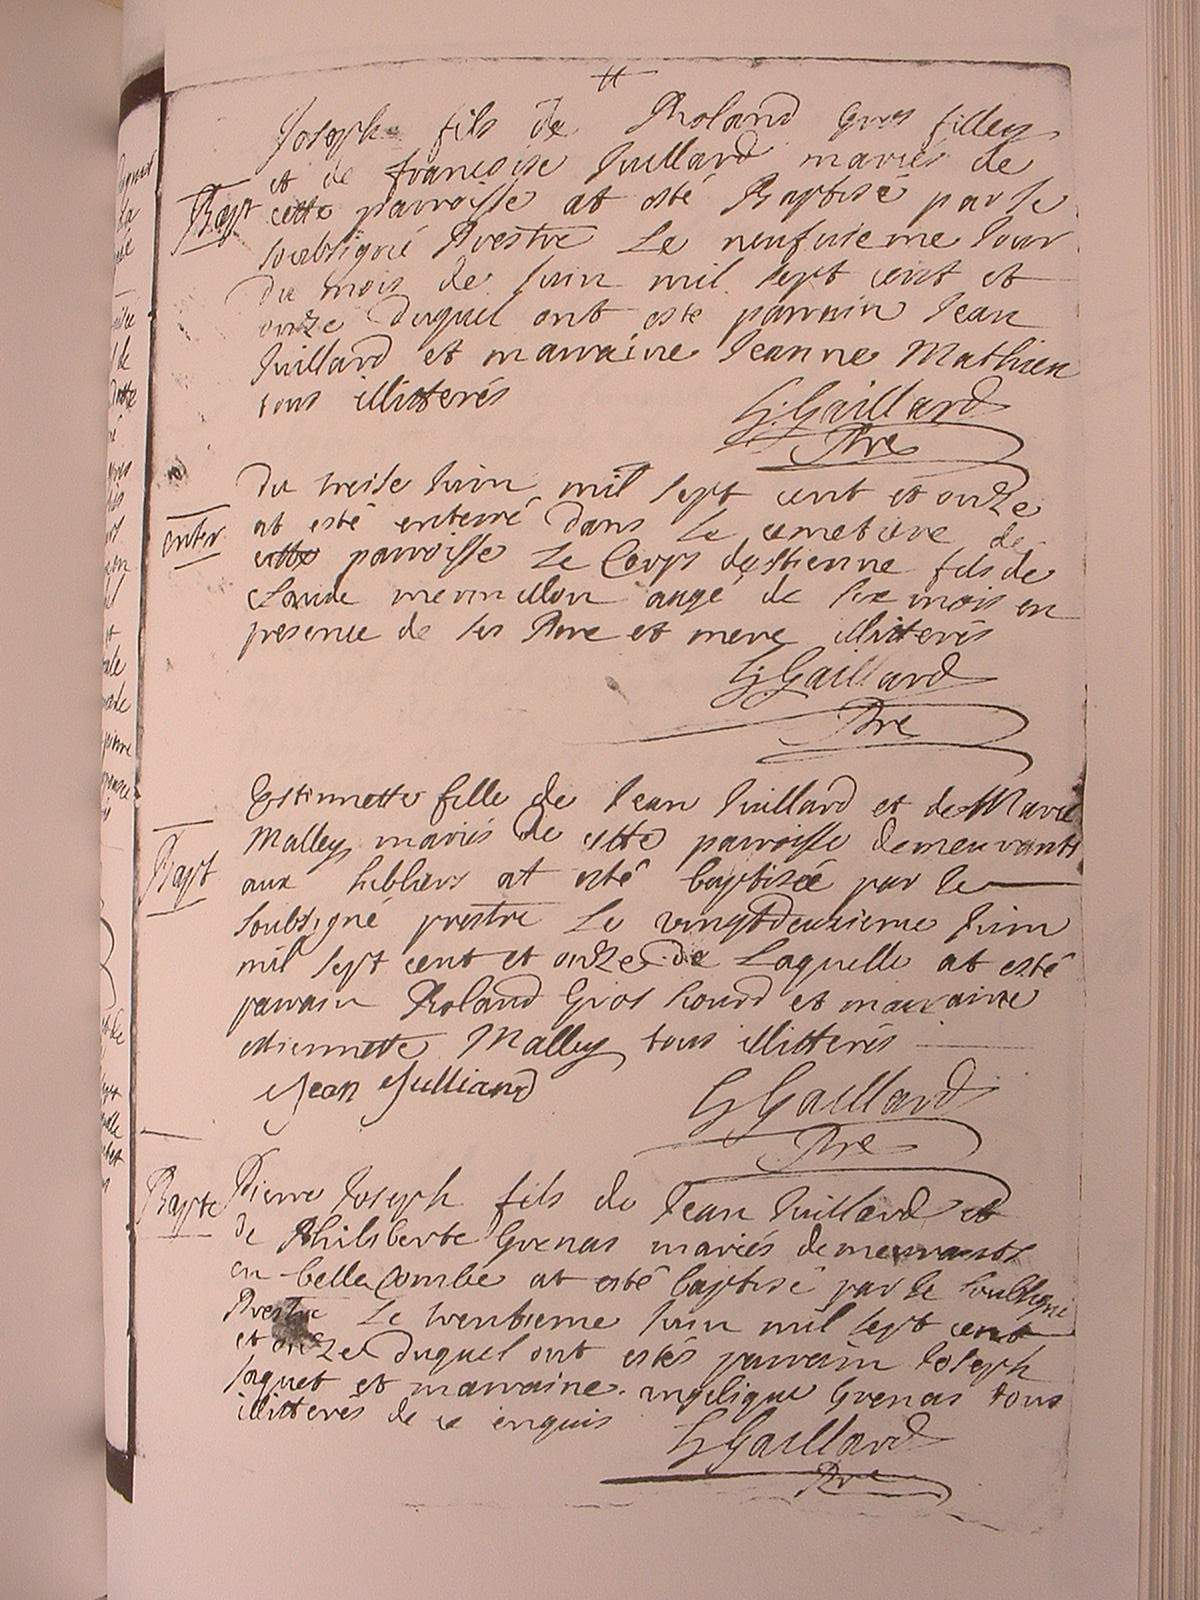 Joseph fils de Roland Gros filley
et de francoise Juillard mariés de
Bapt cette parroisse at esté Baptisé par le
soubsigné Prestre Le neufuieme Jour
du mois de Juin mil sept cent et
onze duquel ont este parrain Jean
Juillard et marraine Jeanne Mathieu
tous illitterés
G. Gaillard
Pre
Du treise Juin mil sept cent et onze
enter at esté enterré dans le cemetiere de
cette parroisse Le Corps destienne fils de
Claude mermillon augé de six mois en
presence de ses Pere et mere illitterés
G. Gaillard
Pre
Estiennette fille de Jean Juillard et de Marie
Malley mariés de cette parroisse demeurants
Bapt aux at esté baptisée par le
soubsigné prestre Le vingtdeuxieme Juin
mil sept cent et onze de Laquelle at esté
parrain Roland Gros et marraine
estiennette Malley tous illitterés
Jean Julliard
G Gaillard
Pre
Bapte Pierre Joseph fils de Jean Juillard et
de Philiberte Grenas mariés demeurants
en bellecombe at esté baptisé par le soubsigné
Prestre Le trentieme Juin mil sept cent
et onze duquel ont estés parrain Joseph
Jaquet et marraine angelique Grenas tous
illitterés de ce enquis
G Gaillard
Pre